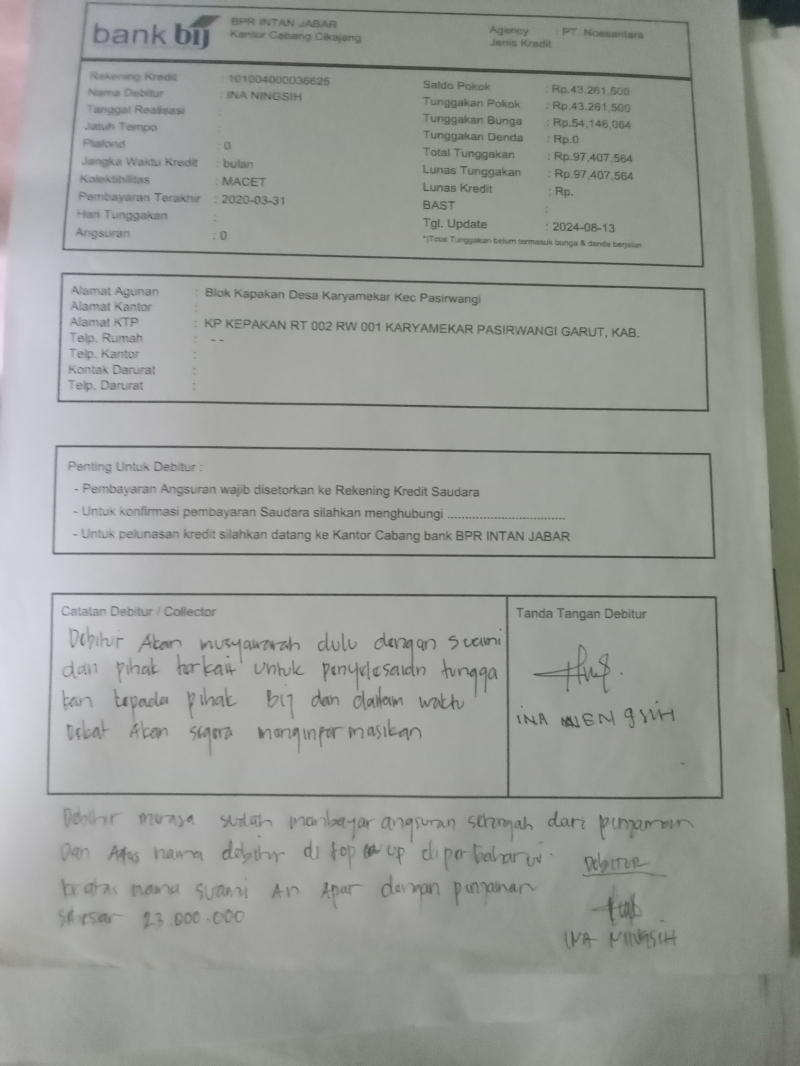 bank bij
BPR INTAN JABAR
Kantor Cabang Cikajang
Agency : PT. Noesantara
Jenis Kredit
Rekening Kredit : 101004000036625
Nama Debitur : INA NINGSIH
Tanggal Realisasi :
Jatuh Tempo :
Plafond : 0
Jangka Waktu Kredit : bulan
Kolektibilitas : MACET
Pembayaran Terakhir : 2020-03-31
Hari Tunggakan :
Angsuran : 0
Saldo Pokok : Rp.43,261,500
Tunggakan Pokok : Rp.43,261,500
Tunggakan Bunga : Rp.54,146,064
Tunggakan Denda : Rp.0
Total Tunggakan : Rp.97,407,564
Lunas Tunggakan : Rp.97,407,564
Lunas Kredit : Rp.
BAST :
Tgl. Update : 2024-08-13
*)Total Tunggakan belum termasuk bunga & denda berjalan
Alamat Agunan : Blok Kapakan Desa Karyamekar Kec Pasirwangi
Alamat Kantor :
Alamat KTP : KP KEPAKAN RT 002 RW 001 KARYAMEKAR PASIRWANGI GARUT, KAB.
Telp. Rumah : - -
Telp. Kantor :
Kontak Darurat :
Telp. Darurat :
Penting Untuk Debitur :
- Pembayaran Angsuran wajib disetorkan ke Rekening Kredit Saudara
- Untuk konfirmasi pembayaran Saudara silahkan menghubungi .................................
- Untuk pelunasan kredit silahkan datang ke Kantor Cabang bank BPR INTAN JABAR
Catatan Debitur / Collector
Debitur Akan musyawarah dulu dengan suami
dan pihak terkait untuk penyelesaian tungga
kan kepada pihak BIJ dan dalam waktu
Dekat Akan segera menginpormasikan
Tanda Tangan Debitur
INA NENGSIH
Debitur merasa sudah membayar angsuran setengah dari pinjaman
Dan Atas nama debitur di top up diperbaharui
ke atas nama suami An Apar dengan pinjaman
sebesar 23.000.000
DEBITUR
INA NINGSIH